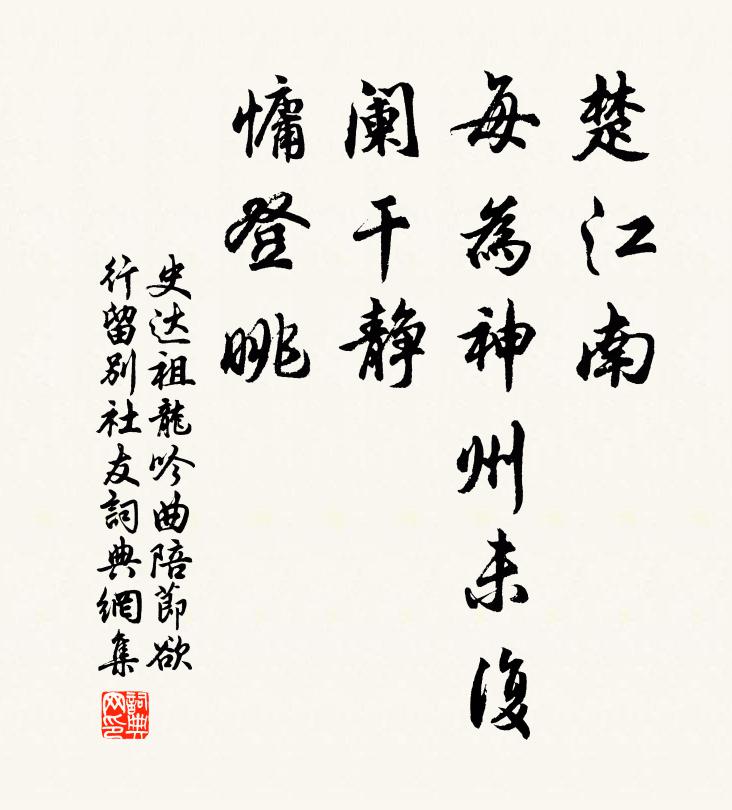 楚江南
每為神州未復
阑干静
慵登眺
史达祖龍吟曲陪節欲
行留别社友詞典網集
詞典网印